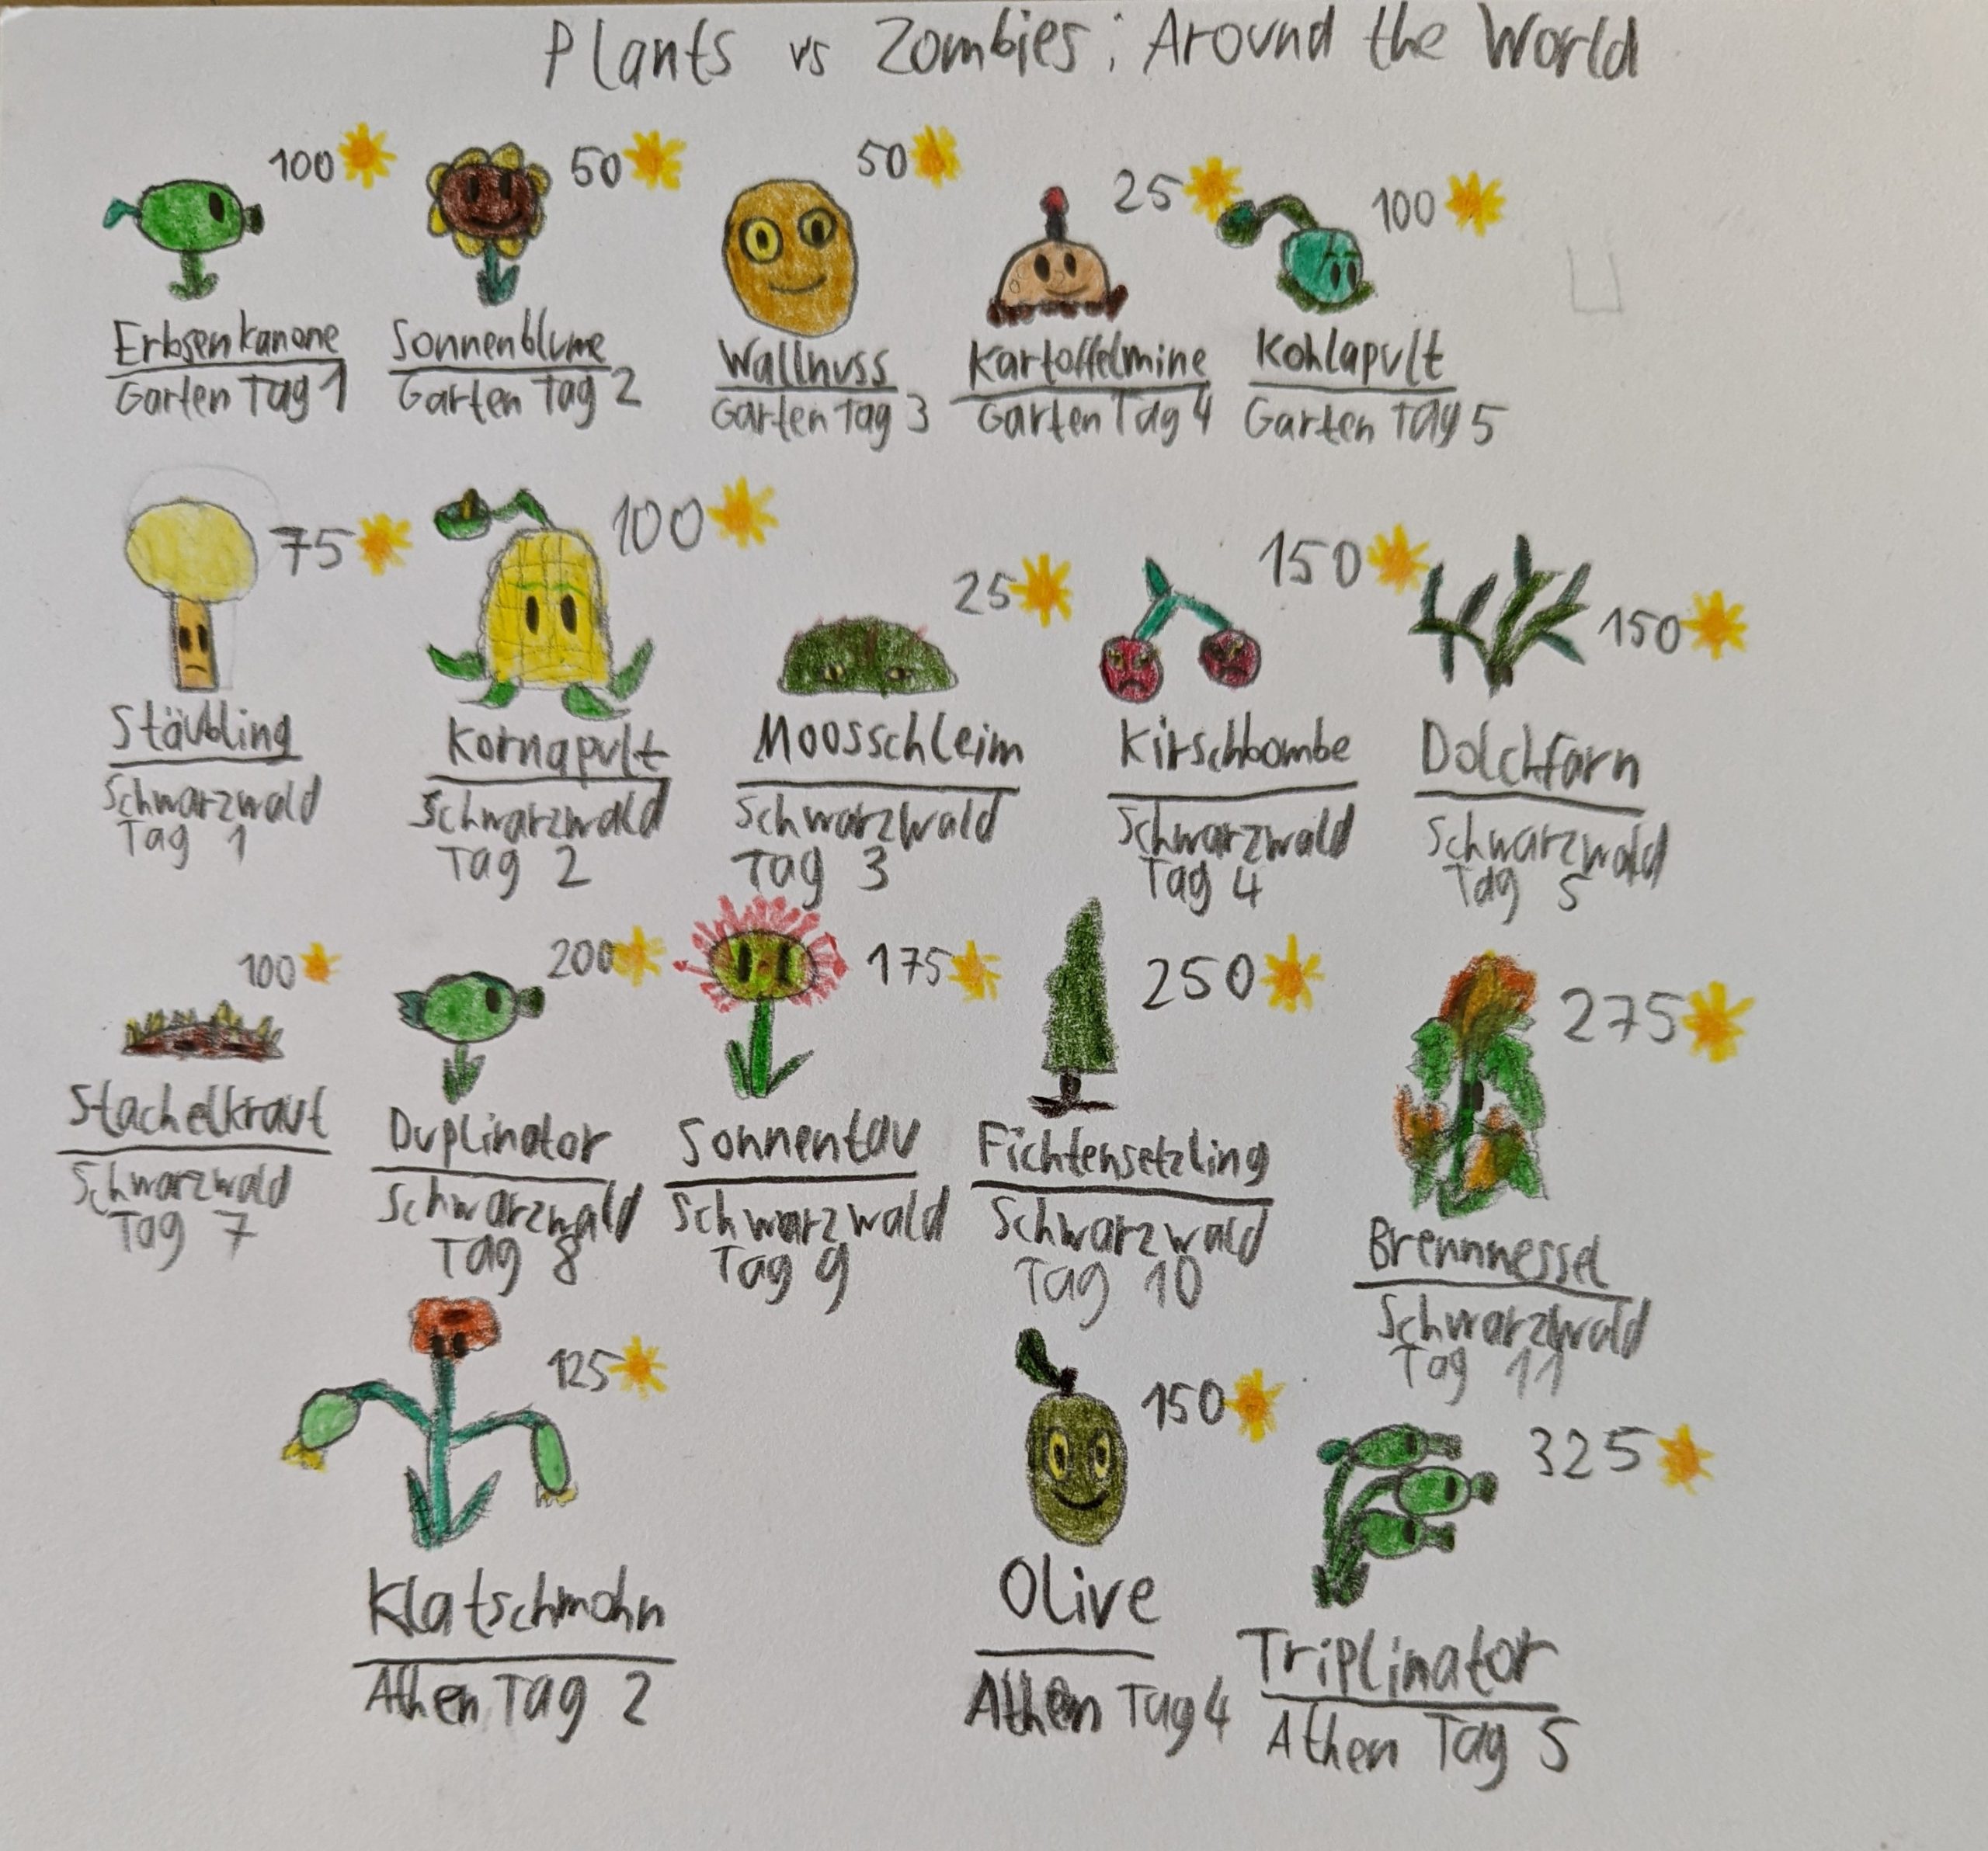 Plants vs Zombies: Around the World
100
50
50
25
100
Erbsenkanone
Garten Tag 1
Sonnenblume
Garten Tag 2
Wallnuss
Garten Tag 3
Kartoffelmine
Garten Tag 4
Kohlapult
Garten Tag 5
75
100
25
150
150
Stäubling
Schwarzwald
Tag 1
Kornapult
Schwarzwald
Tag 2
Moosschleim
Schwarzwald
Tag 3
Kirschbombe
Schwarzwald
Tag 4
Dolchfarn
Schwarzwald
Tag 5
100
200
175
250
275
Stachelkraut
Schwarzwald
Tag 7
Duplinator
Schwarzwald
Tag 8
Sonnentau
Schwarzwald
Tag 9
Fichtensetzling
Schwarzwald
Tag 10
Brennnessel
Schwarzwald
Tag 11
125
150
325
Klatschmohn
Athen Tag 2
Olive
Athen Tag 4
Triplinator
Athen Tag 5